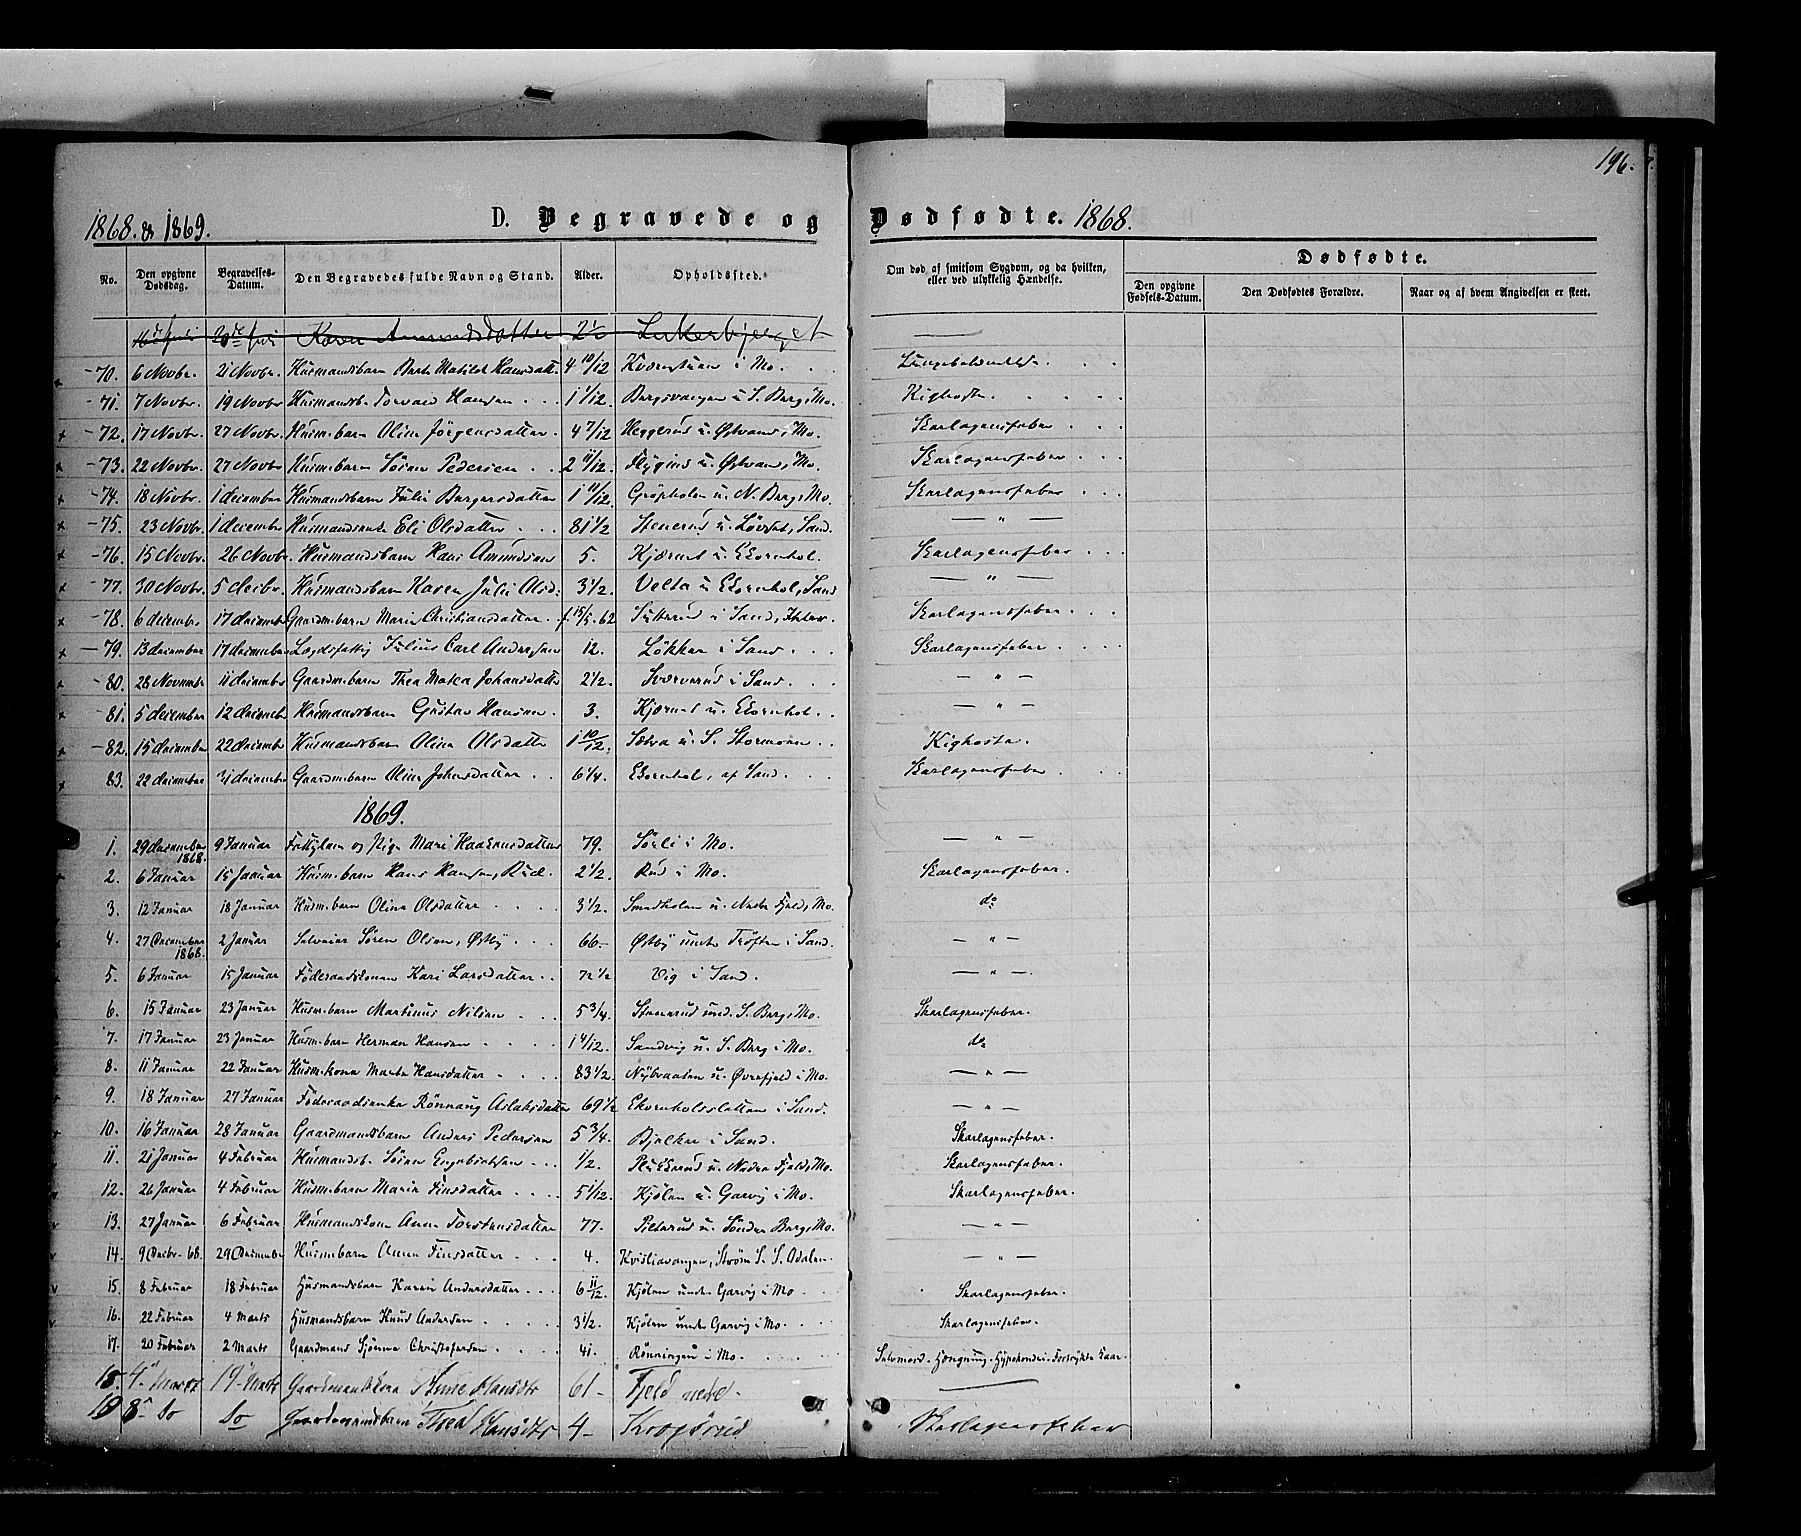 196.
1868. & 1869. D. Begravede og Dødfødte. 1868.
No. Den opgivne Dødsdag. Begravelses-Datum. Den Begravedes fulde Navn og Stand. Alder. Opholdssted. Om død af smitsom Sygdom, og da hvilken, eller ved ulykkelig Hændelse. Dødfødte.
Den opgivne Fødsels-Datum. Den Dødfødtes Forældre. Naar og af hvem Angivelsen er skeet.
Karen Amundsdatter 2½ —
70. 6 Novbr. 21 Novbr. Husmandsbarn Berte Matilde Hansdatt 4 10/12 i Mo.
71. 7 Novbr. 19 Novbr Husmandsb. Torvald Hansen 1 1/12. Bergsvangen u. S. Berg, Mo. Kighoste.
72. 17 Novbr. 27 Novbr. Husmbarn Oline Jörgensdatter 4 7/12 Heggerud u. Østvand, Mo. Skarlagensfeber
73. 22 Novbr. 27 Novbr Husmbarn Sören Pedersen 2 11/12. u. Østvand, Mo. Skarlagensfeber
74. 18 Novbr. 1 december Husmandsbarn Julie Bergersdatter 1 11/12. u. N. Berg, Mo. Skarlagensfeber
75. 23 Novbr. 1 december Husmandsenke Eli Olsdatter 81 1/2 Stenerud u. Lövset, Sand. — " —
76. 15 Novbr. 26 Novbr. Husmandsbarn Hans Amundsen 5. Kjærnet u. Ekornhol. Skarlagensfeber
77. 30 Novbr. 5 decbr. Husmandsbarn Karen Julie Olsd. 3 1/2. Velta u. Ekornhol, Sand — " —
78. 6 decembr 17 december Gaardmbarn Marie Christiansdatter f. 15/5. 62 i Sand, Skarlagensfeber.
79. 13 december 17 december Lægdsfattig Julius Carl Andersen 12. Lökker i Sand Skarlagensfeber
80. 28 Novembr 11 december Gaardmbarn Thea Matea Johansdatter 2 1/2. Sværverud i Sand. — " —
81. 5 december 12 december Husmandsbarn Gustav Hansen 3. Kjærnet u. Ekornhol. — " —
82. 15 december 22 decembr Husmandsbarn Oline Olsdatter 1 10/12. Sætra u. S. Stormoen Kighoste.
83. 22 december 31 december Gaardmbarn Oline Johnsdatter 6 1/4. Ekornhol, af Sand. Skarlagensfeber
1869.
1. 29 december 1868. 9 Januar Fattiglem og Pige Mari Haakensdatter 79. Sörli i Mo. — " —
2. 6 Januar 15 Januar Husmbarn Hans Hansen, Rud. 2 1/2. Rud i Mo. Skarlagensfeber.
3. 12 Januar 18 Januar Husmbarn Oline Olsdatter 3 1/2. Smedholen u. Nedre Fjeld, Mo. do
4. 27 December 1868. 2 Januar Selveier Sören Olsen, Østby 66 Østby under Trøften i Sand. — " —
5. 6 Januar 15 Januar Föderaadskonen Kari Larsdatter 72 1/2 Vig i Sand. — " —
6. 15 Januar 23 Januar Husmbarn Martinus Nilsen 5 3/4. Stenerud und. S. Berg, Mo. Skarlagensfeber.
7. 17 Januar 23 Januar Husmbarn Herman Hansen 1 4/12. Sandvig u. S. Berg i Mo. do
8. 11 Januar 22 Januar Husmkone Marte Hansdatter 83 1/2. Nybraaten u. Øvrefjeld i Mo. — " —
9. 18 Januar 27 Januar Föderaadsenke Rönnaug Aslaksdatter 69 1/2 Ekornholsslatten i Sand. — " —
10. 16 Januar 28 Januar Gaardmandsbarn Anders Pedersen 5 3/4. Bjelker i Sand. Skarlagensfeber.
11. 21 Januar 4 Februar Husmandsb. Sören Engebretsen 1/2. Plukkerud u. Nedre Fjeld, Mo. Skarlagensfeber.
12. 26 Januar 4 Februar Husmbarn Marie Finsdatter 5 1/12. Kjölen u. Garvig i Mo. Skarlagensfeber.
13. 27 Januar 6 Februar Husmandskone Anne Torstensdatter 77. u. Sönder Berg, Mo. — " —
14. 9 Decbr. 68. 29 Decembr Husmbarn Anne Finsdatter 4. Kristiavangen, Ström S. S. Odalen. — " —
15. 8 Februar 18 Februar Husmandsbarn Karen Andersdatter 6 11/12. Kjölen under Garvig i Mo Skarlagensfeber.
16. 22 Februar 4 Marts Husmandsbarn Knud Andersen 3 1/2. Kjölen under Garvig i Mo. Skarlagensfeber.
17. 20 Februar 2 Marts Gaardmand Christofersen 41. Rönningen i Mo. Selvmord. Hængning. Hypokondri.
18. 4 Marts 19 Marts Gaardmandskone Hansdtr 61 Fjeld nedre. —
19 8 Do Do Gaardmandsbarn Thea Hansdtr 4 Kropsrud Skarlagensfeber